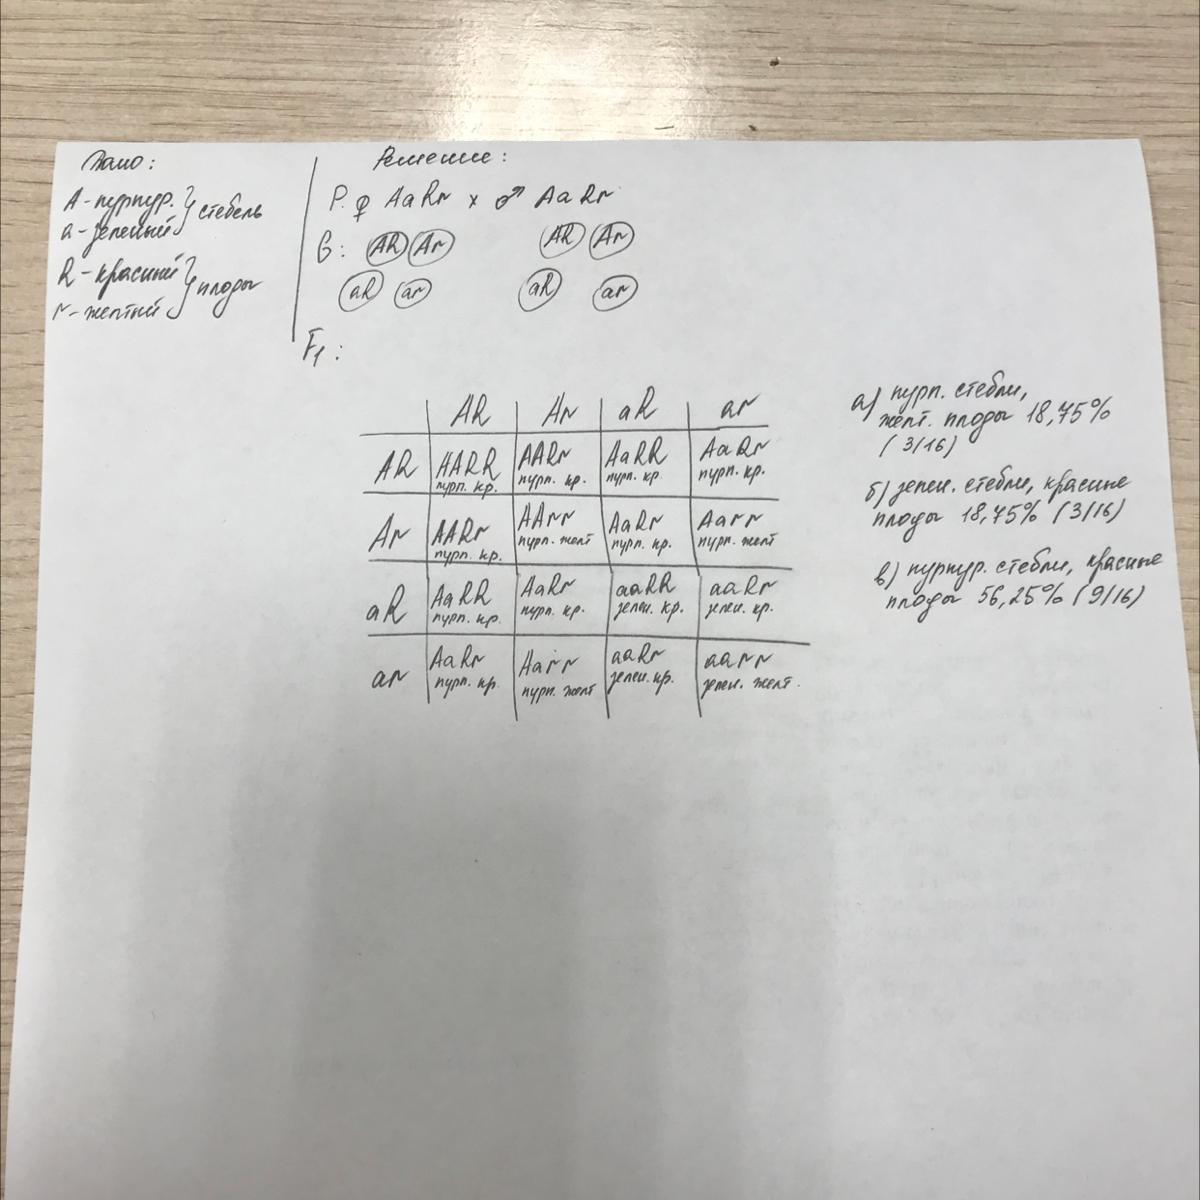 Дано:
A - пурпур. } стебель
a - зеленый
R - красный } плоды
r - желтый
Решение:
P: ♀ AaRr x ♂ AaRr
G: AR Ar AR Ar
aR ar aR ar
F1:
AR Ar aR ar
AR AARR AARr AaRR AaRr
пурп. кр. пурп. кр. пурп. кр. пурп. кр.
Ar AARr AArr AaRr Aarr
пурп. кр. пурп. желт пурп. кр. пурп. желт
aR AaRR AaRr aaRR aaRr
пурп. кр. пурп. кр. зелен. кр. зелен. кр.
ar AaRr Aarr aaRr aarr
пурп. кр. пурп. желт зелен. кр. зелен. желт.
а) пурп. стебли,
желт. плоды 18,75%
(3/16)
б) зелен. стебли, красные
плоды 18,75% (3/16)
в) пурпур. стебли, красные
плоды 56,25% (9/16)